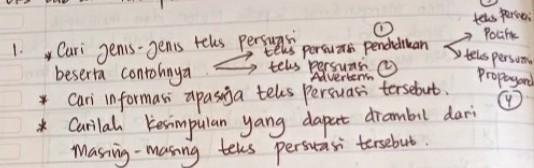 1. * Cari jenis-jenis teks persuasi
beserta contohnya
① teks persuasi pendidikan
teks persuasi Advertensi ②
teks persuasi Politik
teks persuasi Propagand ④
* Cari informasi apasaja teks persuasi tersebut.
* Carilah kesimpulan yang dapat diambil dari
Masing-masing teks persuasi tersebut.